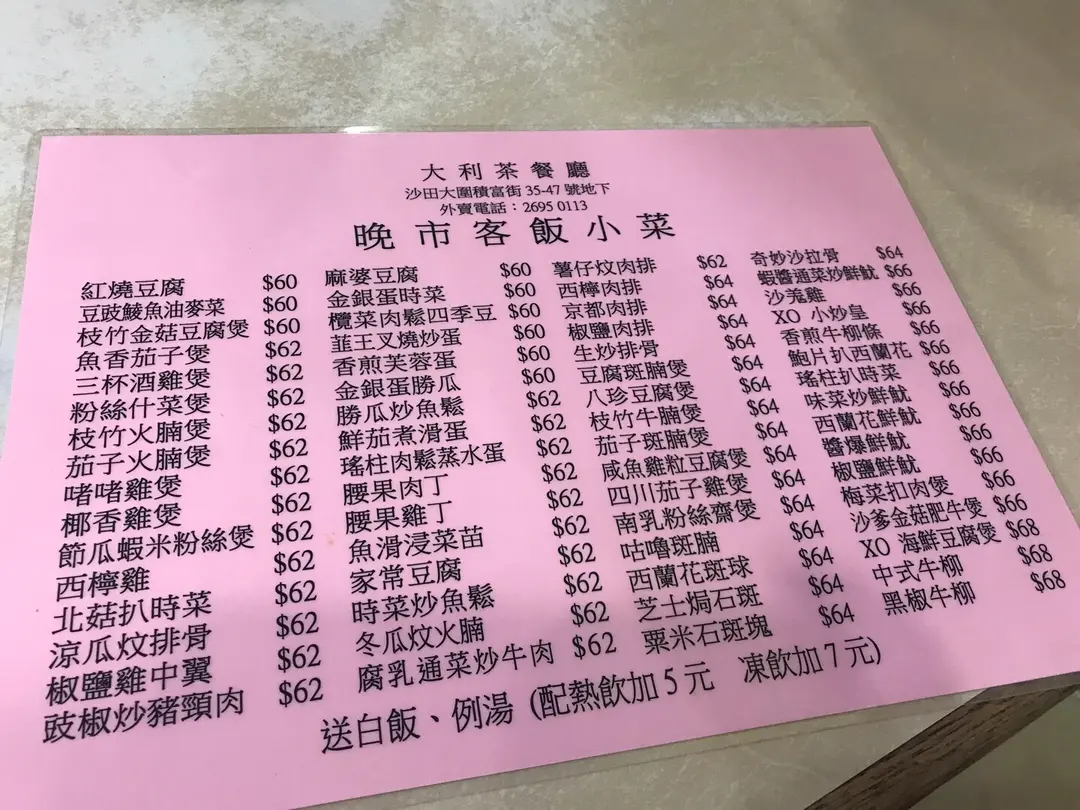 大利茶餐廳
沙田大圍積富街 35-47 號地下
外賣電話：2695 0113
晚市客飯小菜
紅燒豆腐 $60
豆豉鯪魚油麥菜 $60
枝竹金菇豆腐煲 $60
魚香茄子煲 $62
三杯酒雞煲 $62
粉絲什菜煲 $62
枝竹火腩煲 $62
茄子火腩煲 $62
啫啫雞煲 $62
椰香雞煲 $62
節瓜蝦米粉絲煲 $62
西檸雞 $62
北菇扒時菜 $62
涼瓜炆排骨 $62
椒鹽雞中翼 $62
豉椒炒豬頸肉 $62
麻婆豆腐 $60
金銀蛋時菜 $60
欖菜肉鬆四季豆 $60
韮王叉燒炒蛋 $60
香煎芙蓉蛋 $60
金銀蛋勝瓜 $60
勝瓜炒魚鬆 $62
鮮茄煮滑蛋 $62
瑤柱肉鬆蒸水蛋 $62
腰果肉丁 $62
腰果雞丁 $62
魚滑浸菜苗 $62
家常豆腐 $62
時菜炒魚鬆 $62
冬瓜炆火腩 $62
腐乳通菜炒牛肉 $62
薯仔炆肉排 $62
西檸肉排 $64
京都肉排 $64
椒鹽肉排 $64
生炒排骨 $64
豆腐斑腩煲 $64
八珍豆腐煲 $64
枝竹牛腩煲 $64
茄子斑腩煲 $64
咸魚雞粒豆腐煲 $64
四川茄子雞煲 $64
南乳粉絲齋煲 $64
咕嚕斑腩 $64
西蘭花斑球 $64
芝士焗石斑 $64
粟米石斑塊 $64
奇妙沙拉骨 $64
蝦醬通菜炒鮮魷 $66
沙羗雞 $66
XO 小炒皇 $66
香煎牛柳條 $66
鮑片扒西蘭花 $66
瑤柱扒時菜 $66
味菜炒鮮魷 $66
西蘭花鮮魷 $66
醬爆鮮魷 $66
椒鹽鮮魷 $66
梅菜扣肉煲 $66
沙爹金菇肥牛煲 $66
XO 海鮮豆腐煲 $68
中式牛柳 $68
黑椒牛柳 $68
送白飯、例湯 (配熱飲加 5 元 凍飲加 7 元)